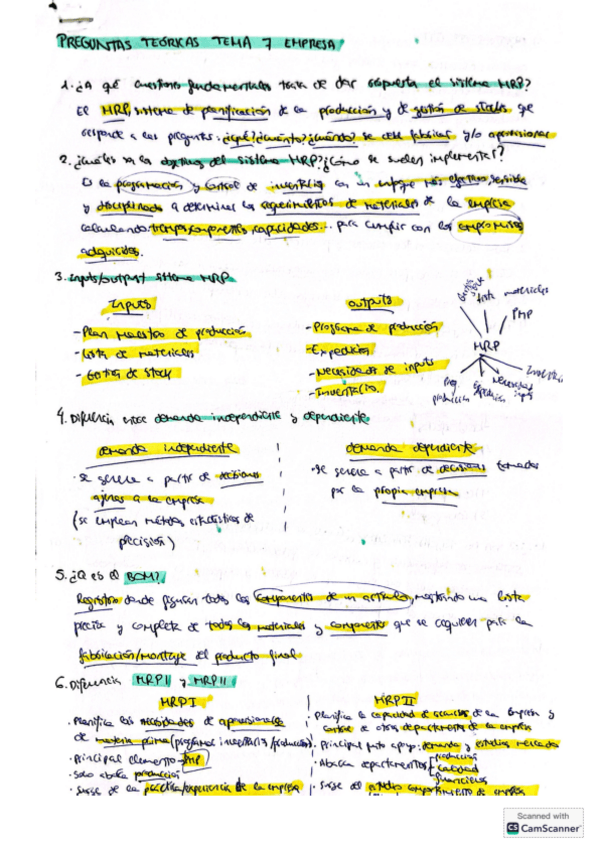 PREGUNTAS TEÓRICAS TEMA 7 EMPRESA
1. ¿A qué cuestiones fundamentales trata de dar respuesta el sistema MRP?
El MRP, sistema de planificación de la producción y de gestión de stocks que
responde a las preguntas: ¿qué? ¿cuánto? ¿cuándo? se debe fabricar y/o aprovisionar
2. ¿Cuáles son los objetivos del sistema MRP? ¿Cómo se suelen implementar?
Es la programación y control de inventarios con un enfoque más efectivo, sensible
y disciplinado a determinar los requerimientos de materiales de la empresa
calculando tiempos, capacidades... para cumplir con los compromisos
adquiridos.
3. Inputs/output sistema MRP
Inputs
- Plan maestro de producción
- Lista de materiales
- Gestión de stock
outputs
- Programa de producción
- Expedición
- Necesidades de inputs
- Inventario.
Gestión stock
lista materiales
PMP
MRP
Prog. producción
Expedición
Necesidad inputs
Inventario
4. Diferencia entre demanda independiente y dependiente
demanda independiente
· Se genera a partir de decisiones
ajenas a la empresa
(se emplean métodos estadísticos de
precisión)
demanda dependiente
· Se genera a partir de decisiones tomadas
por la propia empresa
5. ¿Q es el BOM?
Registro donde figuran todos los componentes de un artículo, mostrando una lista
precisa y completa de todos los materiales y componentes que se requieren para la
fabricación/montaje del producto final
6. Diferencia MRP I y MRP II
MRP I
· Planifica las necesidades de aprovisionar
de materia prima (programas inventarios/producción)
· Principal elemento → PMP
· Solo abarca producción
· Surge de la práctica/experiencia de la empresa
MRP II
· Planifica la capacidad de recursos de la empresa y
control de otros departamentos de la empresa
· Principal punto apoyo: demanda y estudios mercado
· Abarca departamentos
producción
calidad
financieros
· Surge del estudio comportamiento de empresa
Scanned with
CS CamScanner